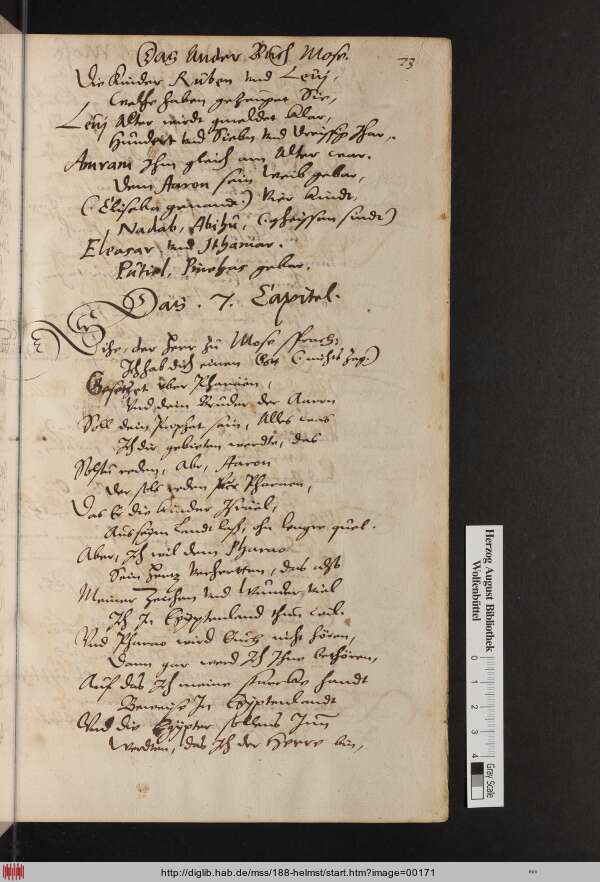 Das Ander Buch Mose.
73
Die Kinder Ruben und Levj,
Welche haben gezeuget Sie,
Levj Alter wirdt gmeldet klar,
Hundert und Sieben und dreissig Jhar,
Amram Ihm gleich am Alter war.
Dem Aaron sein Weib gebar,
(Eliseba genandt) Vier Kindt,
Nadab, Abihu, (gheissen sindt)
Eleasar, und Ithamar.
Putiel, Pinehas gebar.
Das . 7. Capitel.
Sihe, der Herr zu Mose sprach,
Ich hab dich einen Gott (nichts zag)
Gesetzet uber Pharaon,
Und dein Bruder der Aaron
Soll dein Prophet sein, Alles was
Ich dir gebieten werdte, das
Soltu reden, Aber, Aaron
der sols reden fur Pharaon,
Das Er die Kinder Israel,
Aus seym Landt lass, ohn lenger quel.
Aber, Ich wil dem Pharao
Sein Hertz verhertten, das also
Meiner Zeichen und Wunder viel
Ich In Egyptenland thun wil.
Und Pharao wird Euch nicht hören,
Dann gar werd Ich Ihn bethören,
Auf das Ich meine starcke Handt
Beweise In Egyptenlandt
Und die Egypter sollens Inn
Werdten, das Ich der Herre bin,
Herzog August Bibliothek
Wolfenbüttel
0 1 2 3 4
Gray Scale
http://diglib.hab.de/mss/188-helmst/start.htm?image=00171